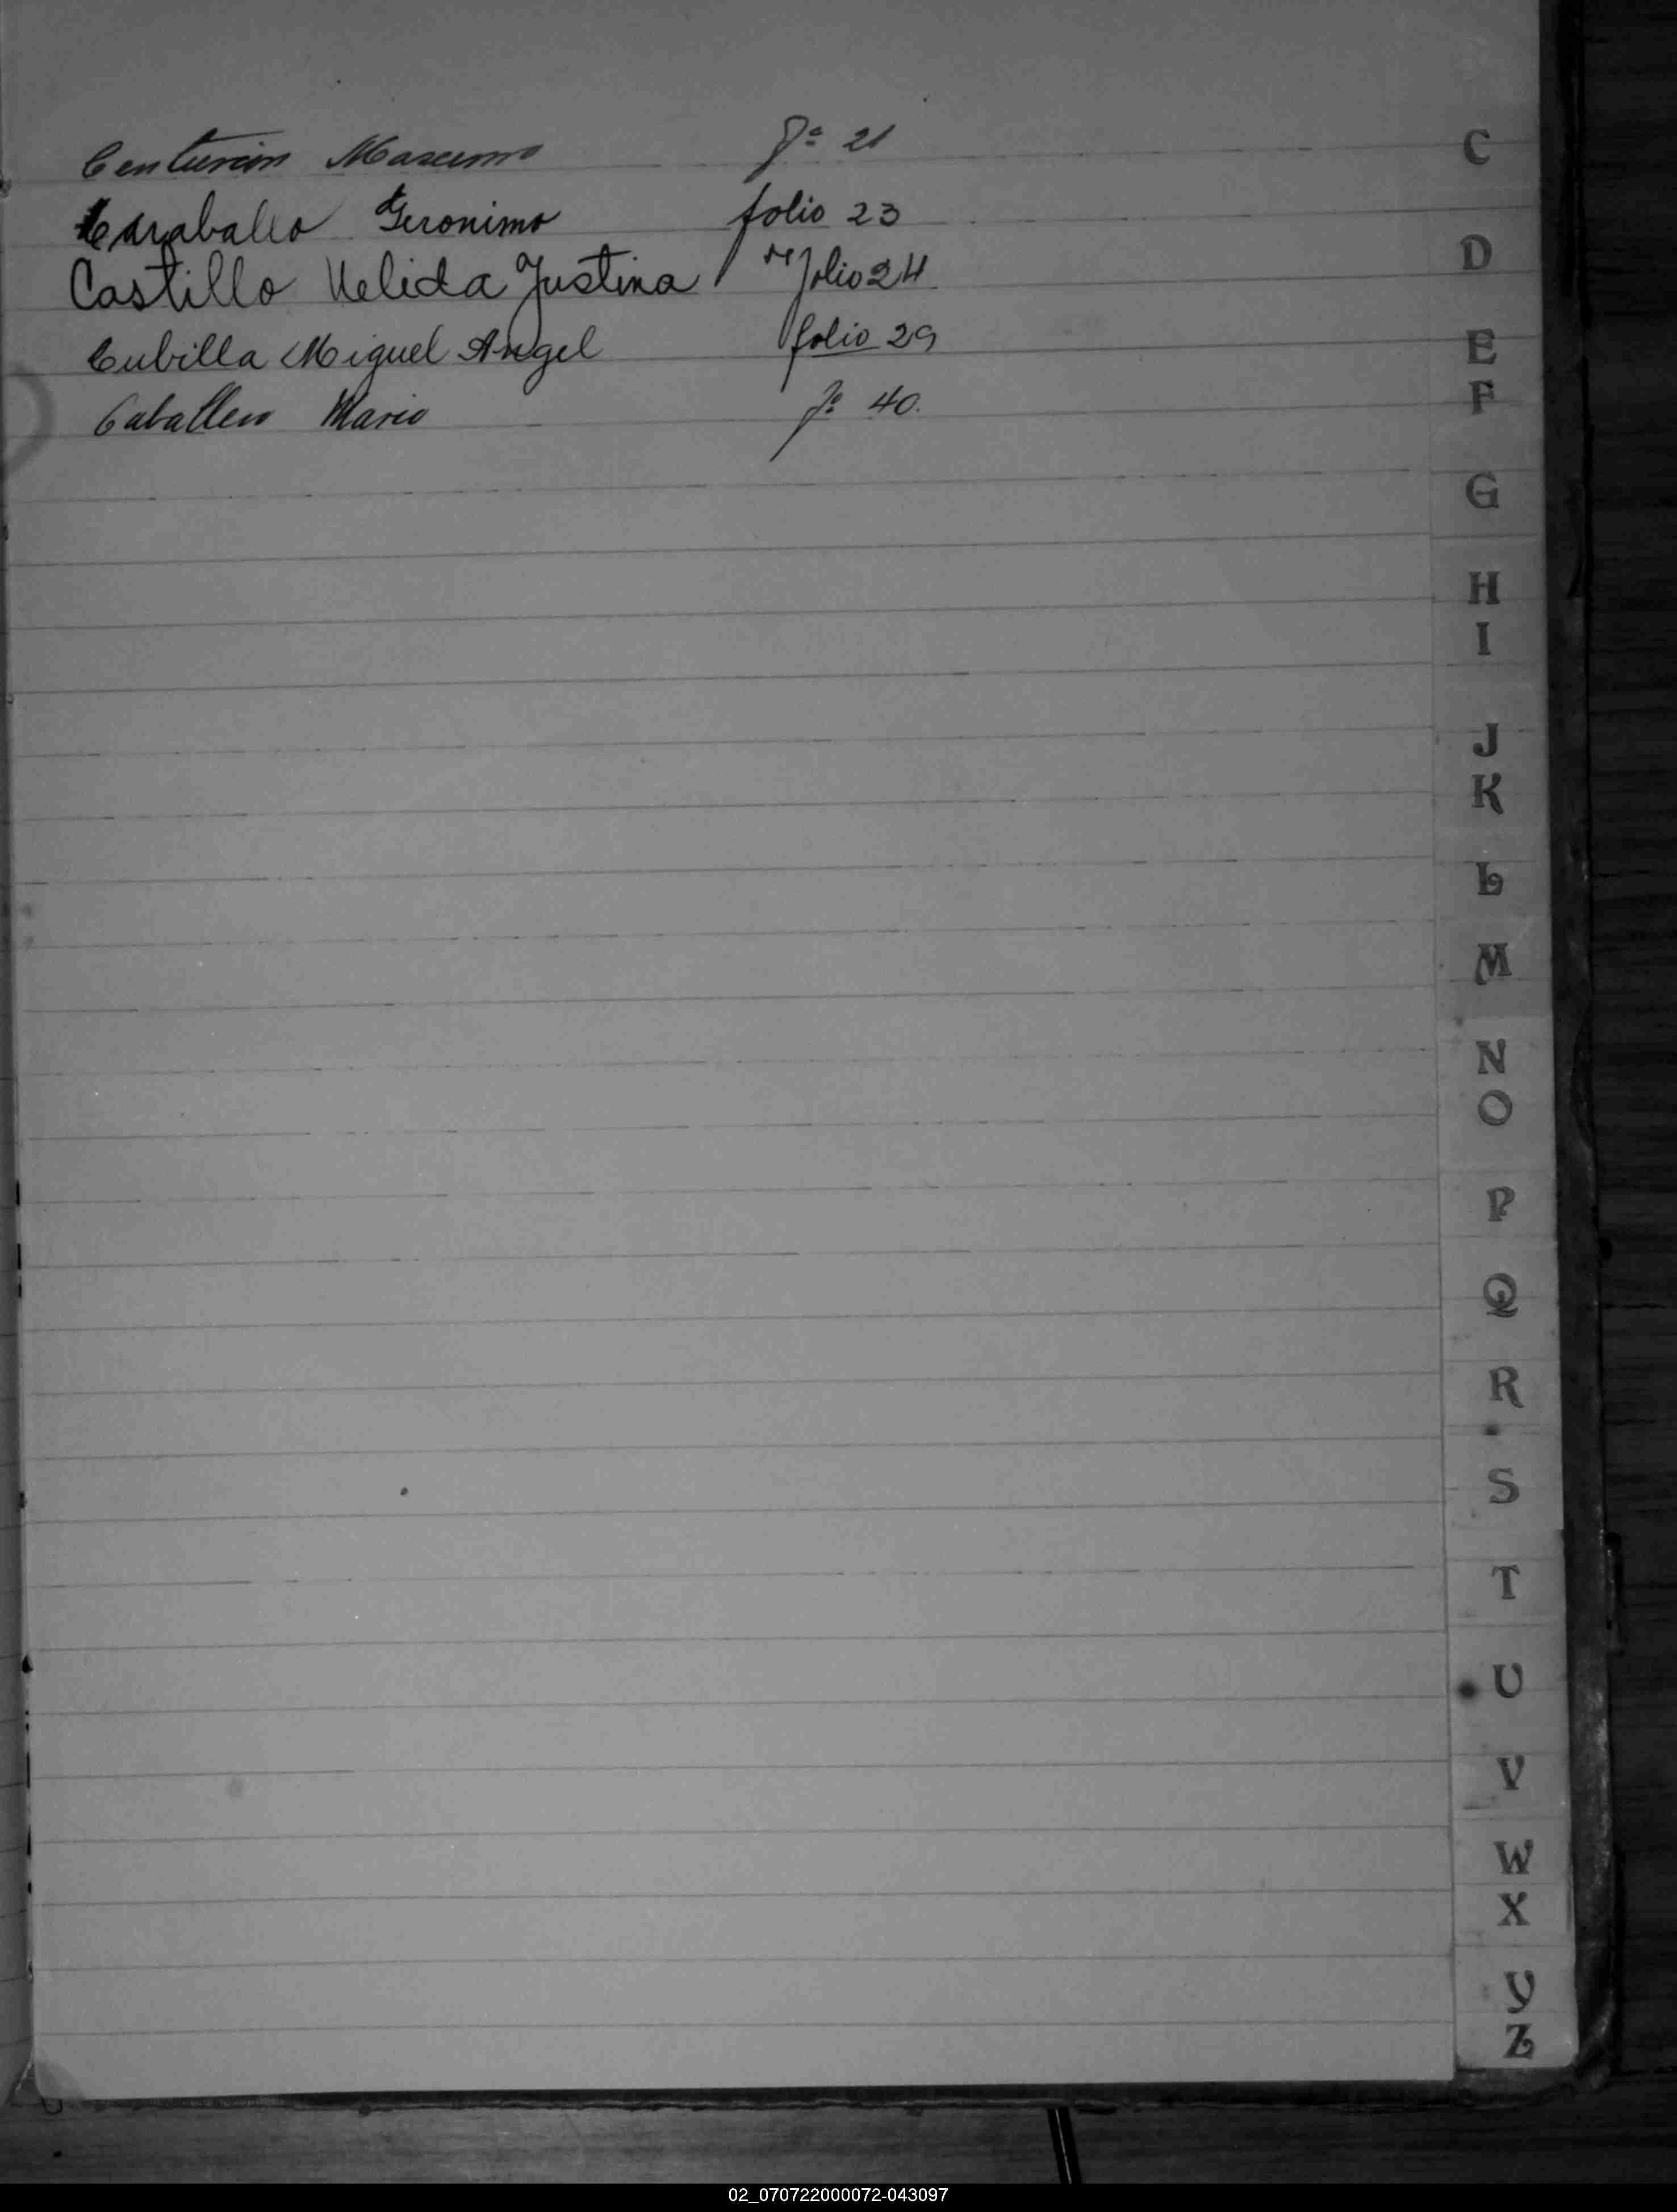 Centurion Maximo fº 21
Caraballo Geronimo folio 23
Castillo Nelida Justina folio 24
Cubilla Miguel Angel folio 29
Caballero Mario fº 40.
C
D
E
F
G
H
I
J
K
L
M
N
O
P
Q
R
S
T
U
V
W
X
Y
Z
02_070722000072-043097